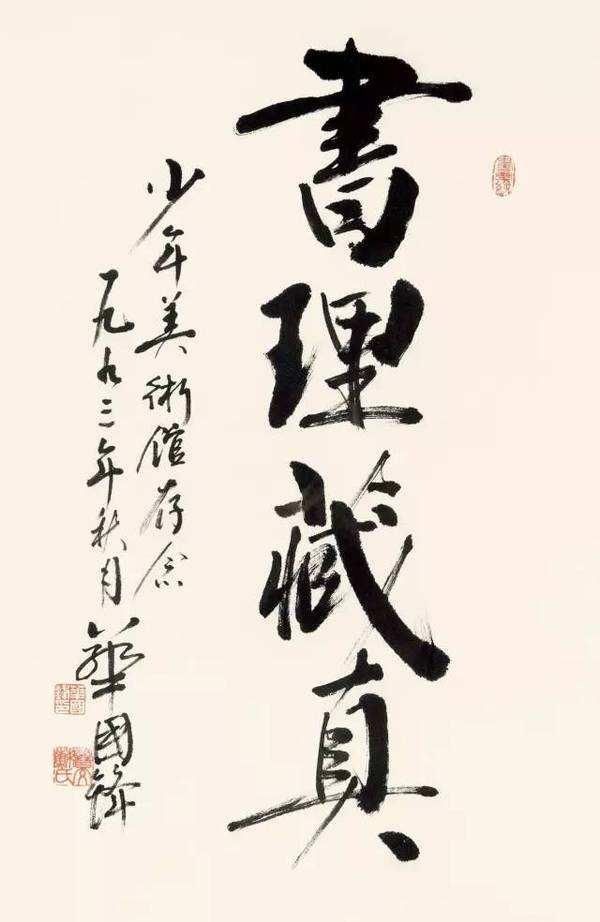 書理藏真
少年美術館存念
一九九三年秋月 華國鋒